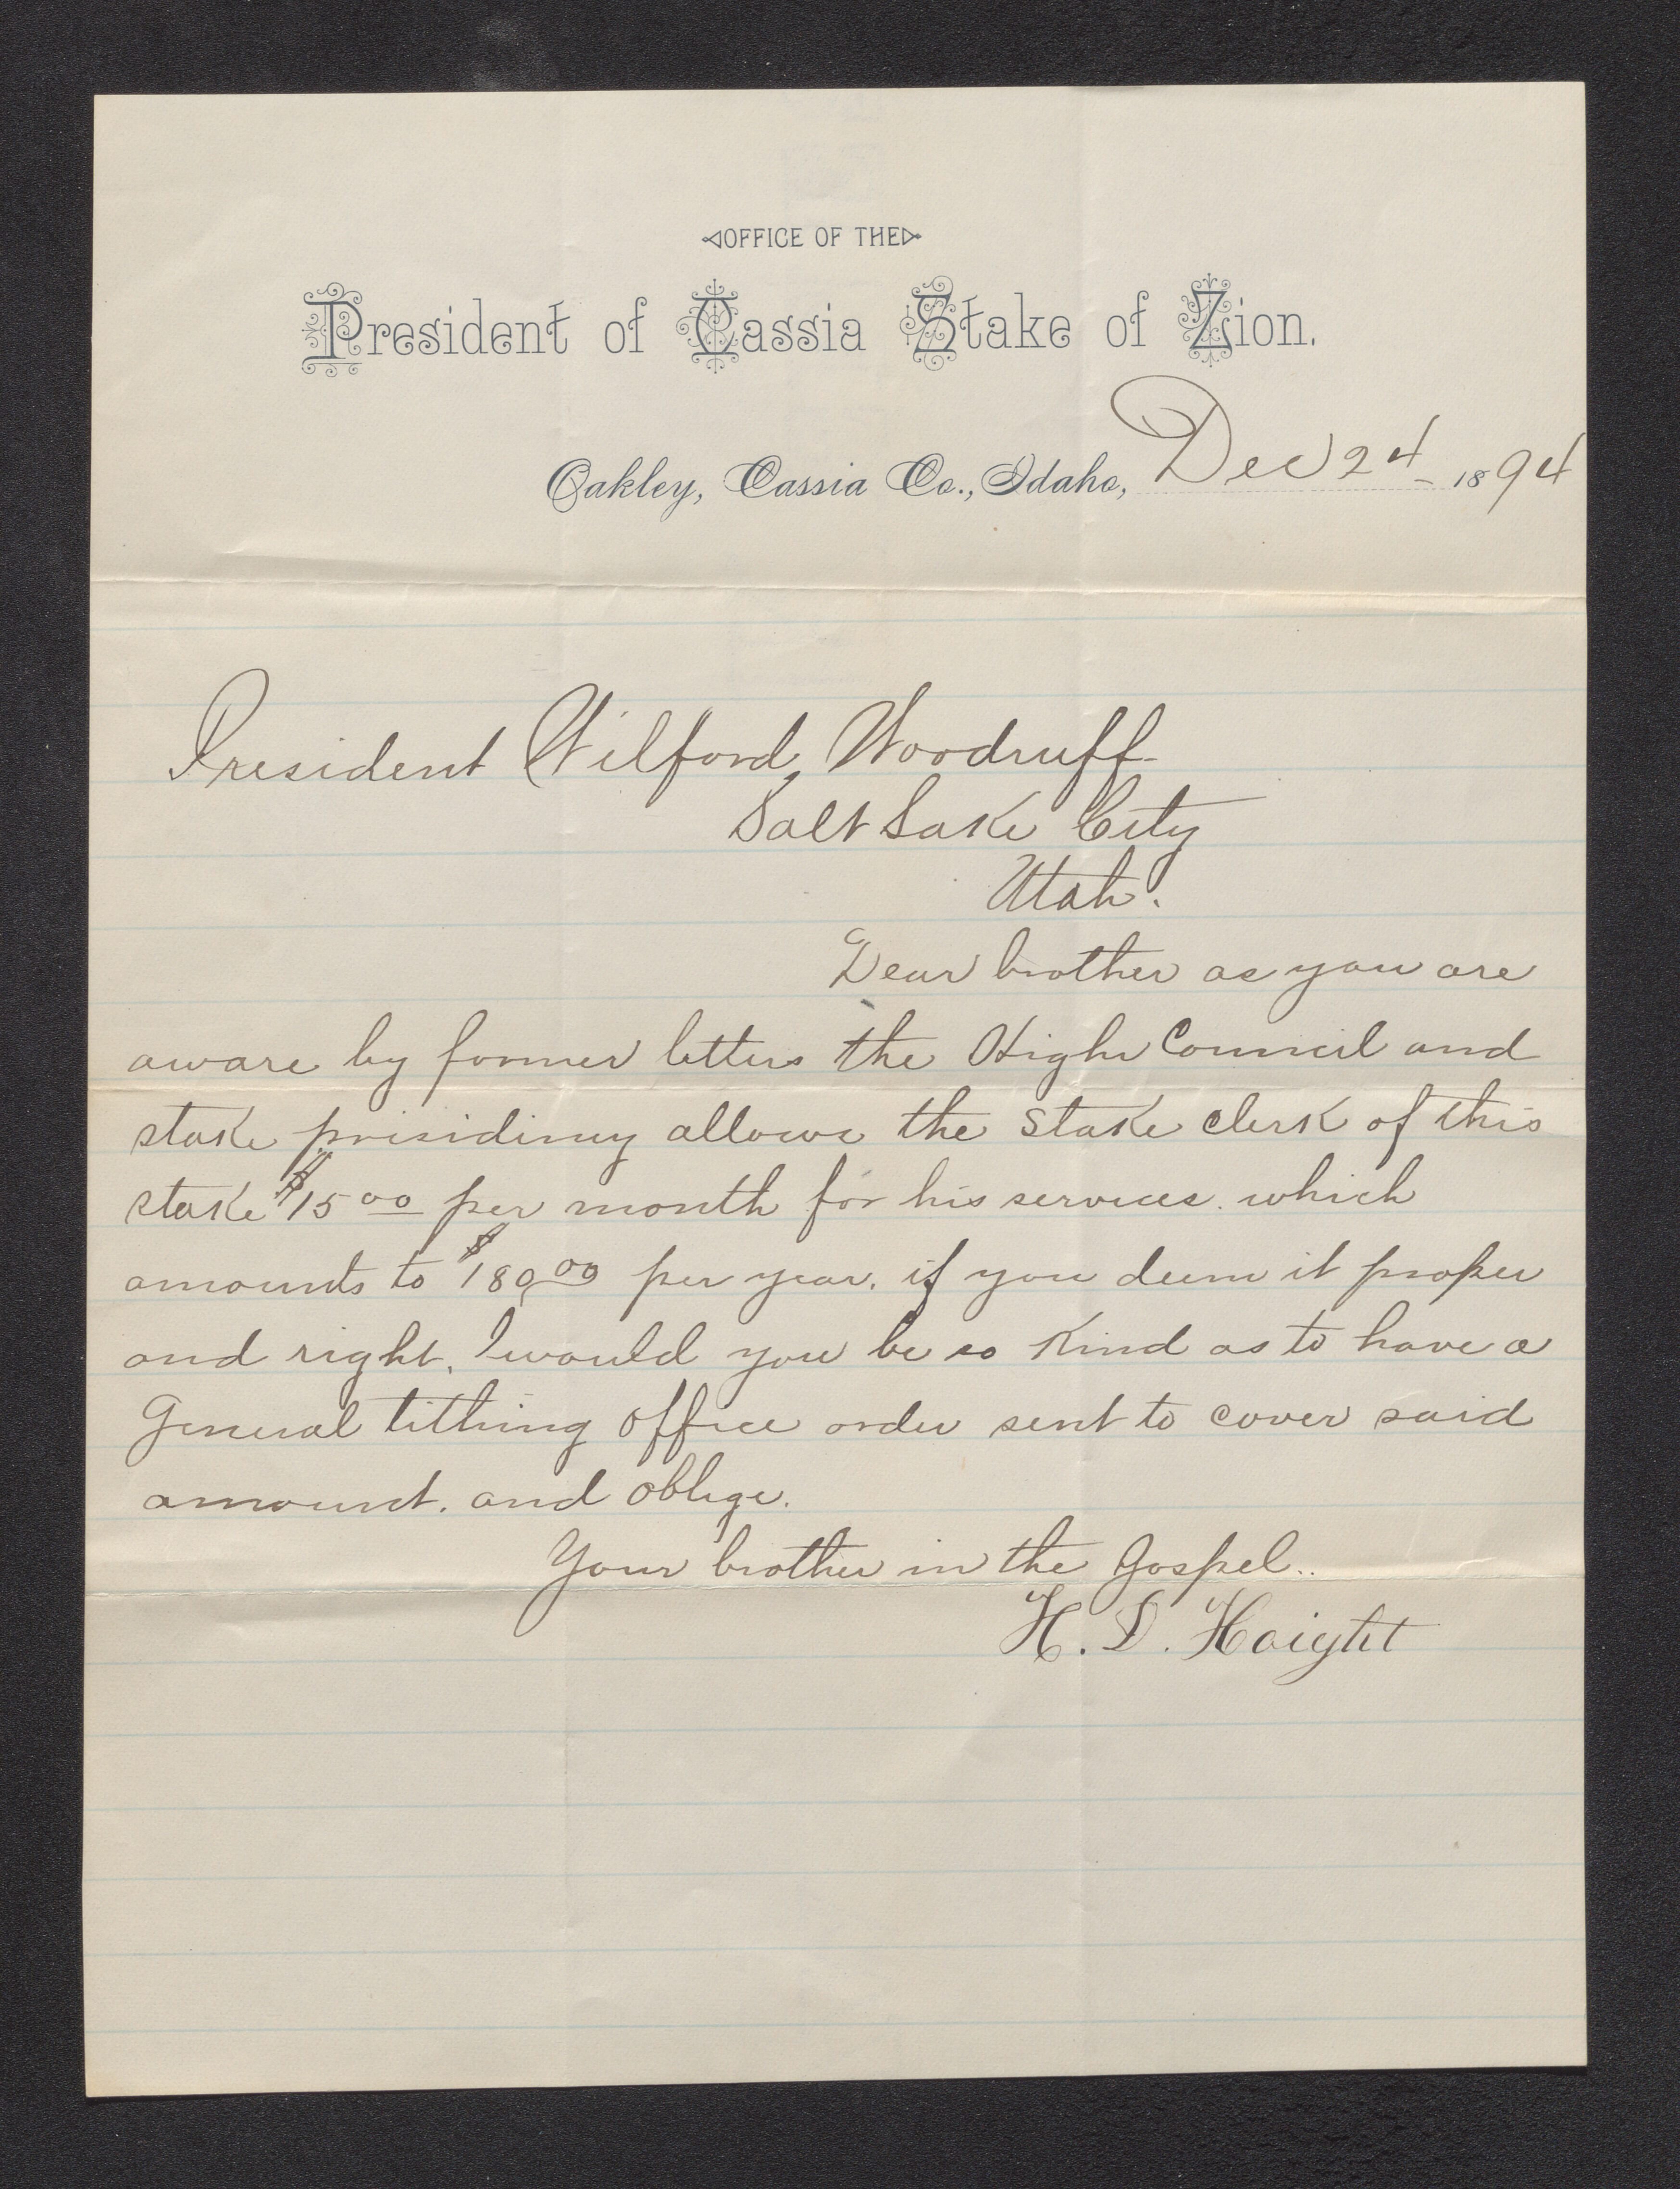 OFFICE OF THE
President of Cassia Stake of Zion.
Oakley, Cassia Co., Idaho, Dec 24 1894
President Wilford Woodruff
Salt Lake City
Utah.
Dear brother as you are
aware by former letters the High Council and
stake prisidincy allows the Stake Clerk of this
stake $15 00 per month for his services. which
amounts to $180 00 per year. if you deem it proper
and right, would you be so Kind as to have a
General tithing office order sent to cover said
amount. and oblige.
Your brother in the Gospel..
H. D. Haight